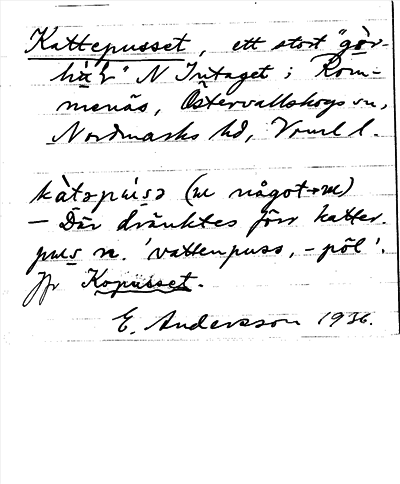 Kattepusset, ett stort "gör-
hå̀l" N Intaget i Rom-
menäs, Östervallskogs sn,
Nordmarks hd, Vrml l.
kàtəpúsə (u något → ʉ)
– Där dränktes förr katter.
pus n. 'vattenpuss, -pöl'.
Jfr Kopusset.
E. Andersson 1936.